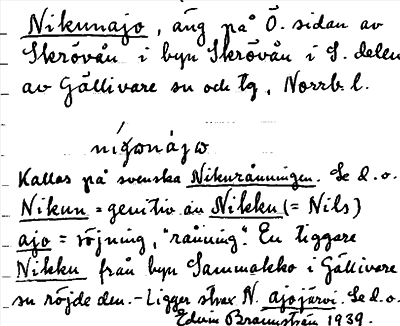 Nikunajo, äng på Ö. sidan av
Skröven i byn Skröven i S. delen
av Gällivare sn och tg, Norrb. l.
nígonájω
Kallas på svenska Nikuråningen. Se d. o.
Nikun = genitiv av Nikku (= Nils)
ajo = röjning, "råning". En tiggare
Nikku från byn Sammakko i Gällivare
sn röjde den. - Ligger strax N. ajojärvi. Se d. o.
Edvin Brännström 1939.